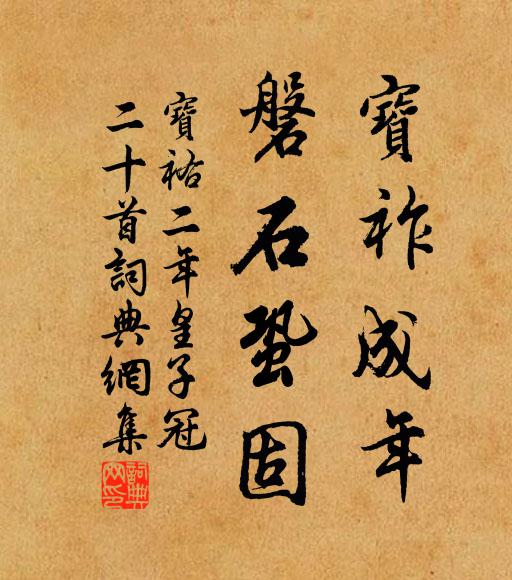 寶祚成年
磐石蛩固
寶祐二年皇子冠
二十首詞典網集
詞典網印